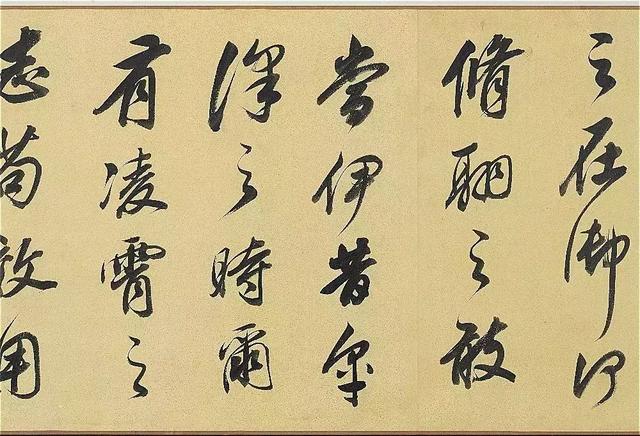 之在御何
脩翮之敢
當伊昔皋
澤之時爾
有凌霄之
志苟效用